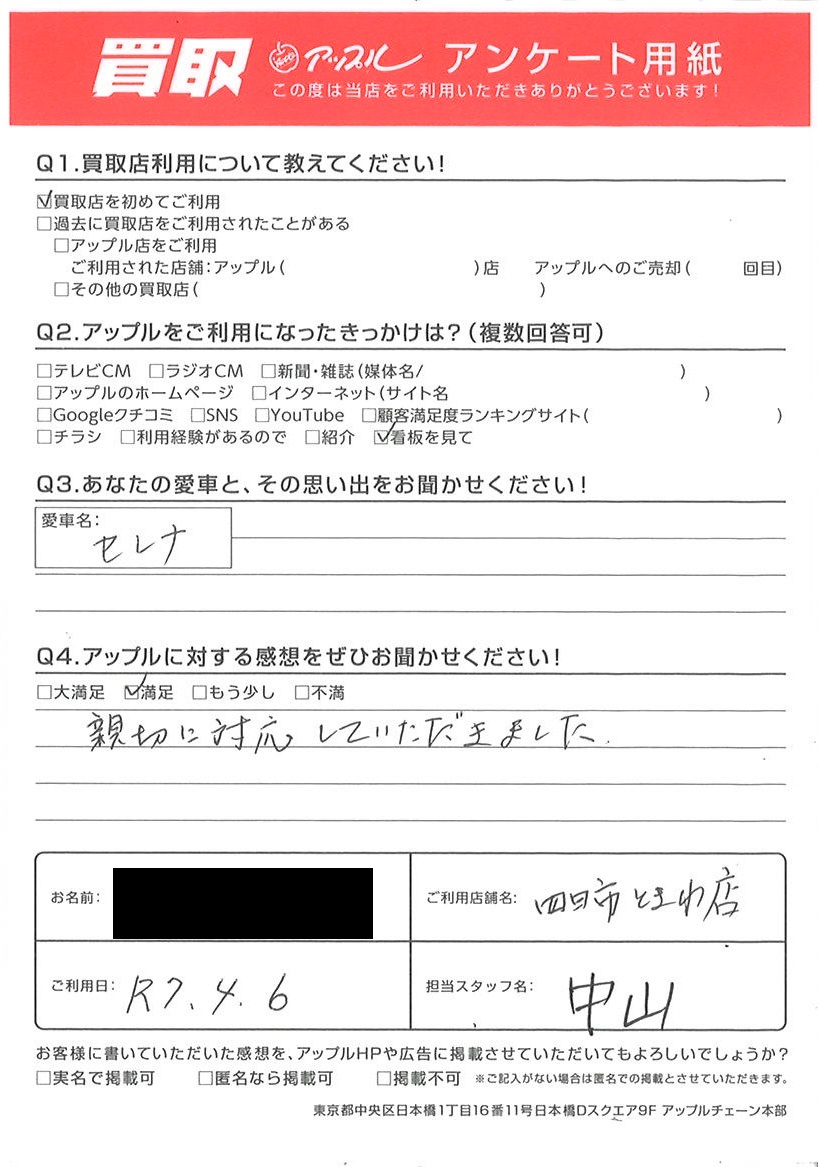 買取 アップル アンケート用紙
この度は当店をご利用いただきありがとうございます!
Q1.買取店利用について教えてください!
☑買取店を初めてご利用
□過去に買取店をご利用されたことがある
□アップル店をご利用
ご利用された店舗:アップル( )店 アップルへのご売却( 回目)
□その他の買取店( )
Q2.アップルをご利用になったきっかけは?(複数回答可)
□テレビCM □ラジオCM □新聞・雑誌(媒体名/ )
□アップルのホームページ □インターネット(サイト名 )
□Googleクチコミ □SNS □YouTube □顧客満足度ランキングサイト( )
□チラシ □利用経験があるので □紹介 ☑看板を見て
Q3.あなたの愛車と、その思い出をお聞かせください!
愛車名:
セレナ
Q4.アップルに対する感想をぜひお聞かせください!
□大満足 ☑満足 □もう少し □不満
親切に対応していただきました.
お名前: ご利用店舗名: 四日市ときわ店
ご利用日: R7.4.6 担当スタッフ名: 中山
お客様に書いていただいた感想を、アップルHPや広告に掲載させていただいてもよろしいでしょうか?
□実名で掲載可 □匿名なら掲載可 □掲載不可 ※ご記入がない場合は匿名での掲載とさせていただきます。
東京都中央区日本橋1丁目16番11号日本橋Dスクエア9F アップルチェーン本部